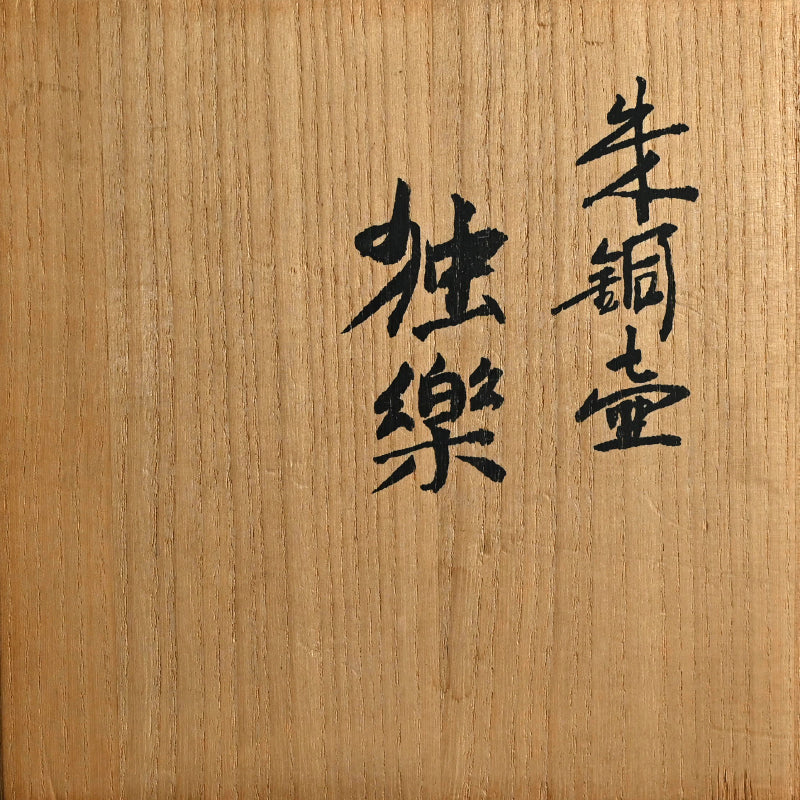 朱銅壺
独樂